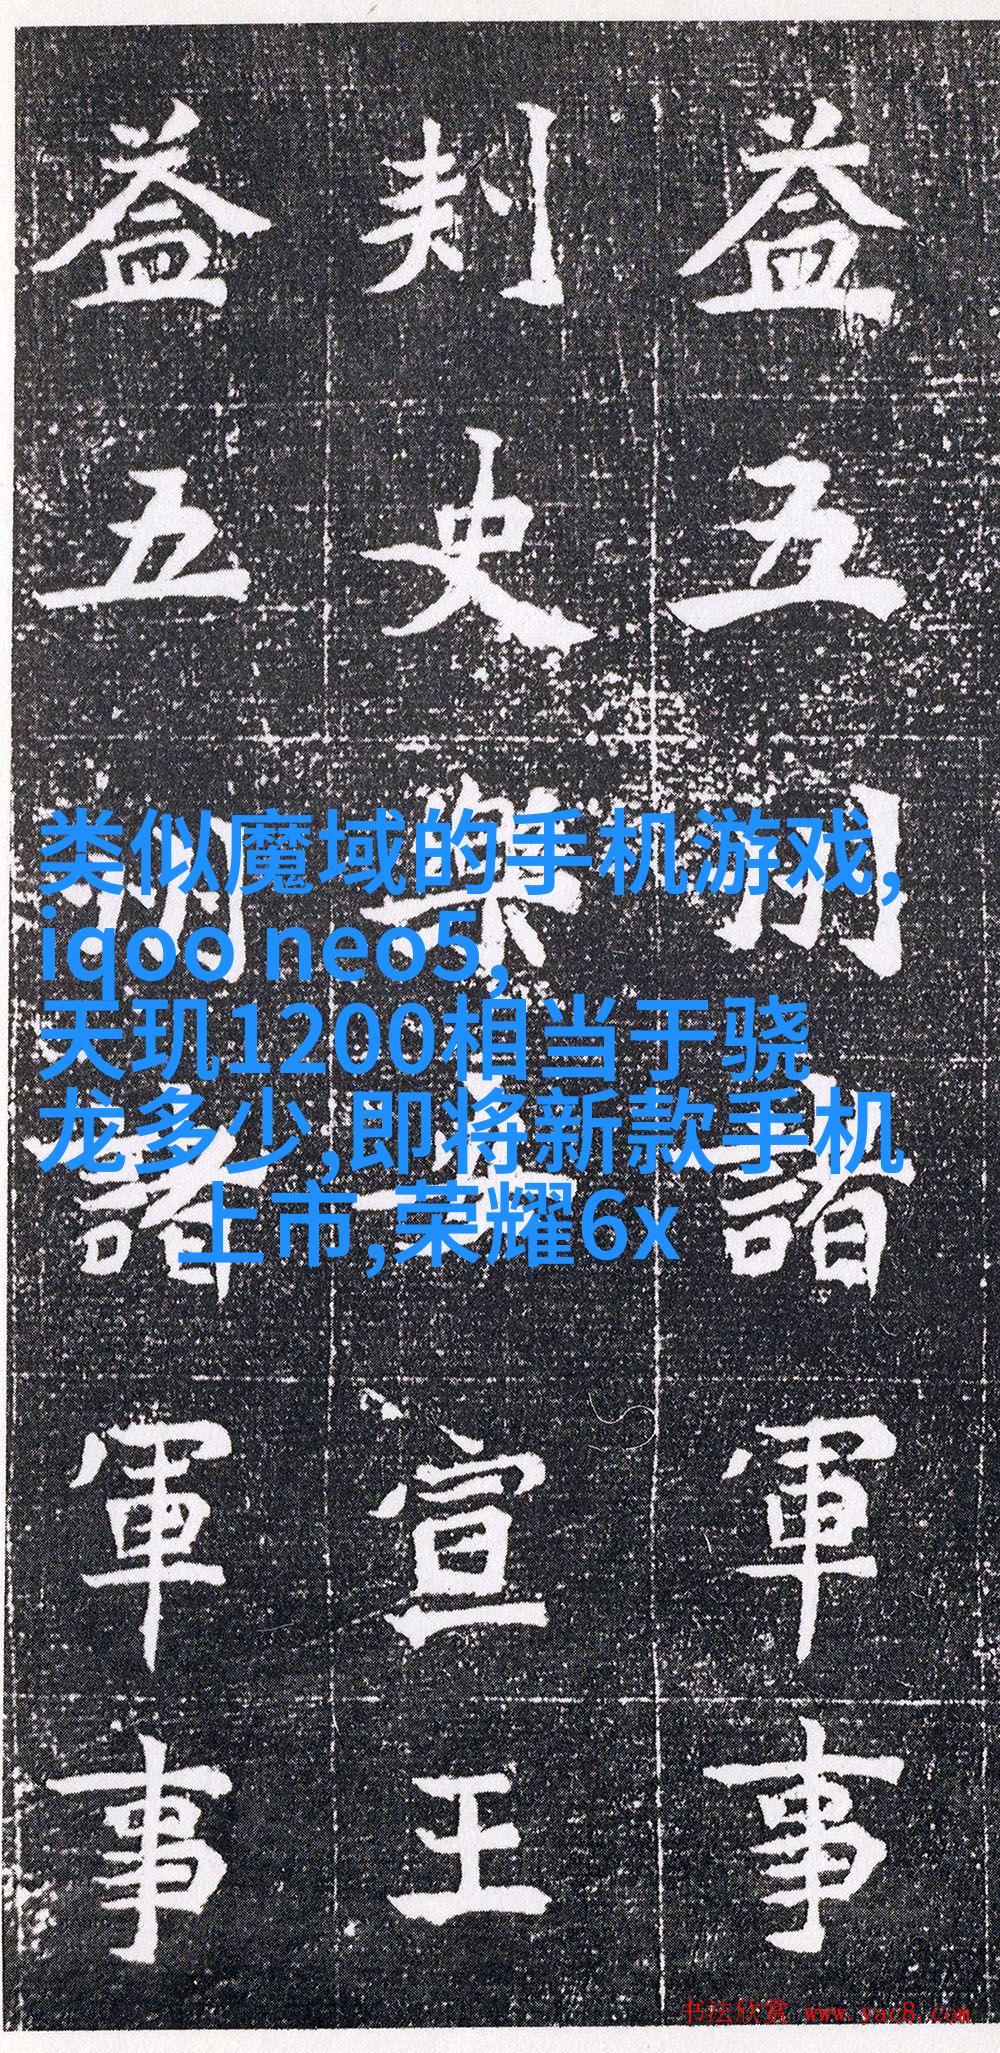 益五州諸軍事
刾史樂宣王
益五州諸軍事
类似魔域的手机游戏,
iqoo neo5,
天玑1200相当于骁
龙多少,即将新款手机
上市,荣耀6x
书法欣赏 www.yac8.com